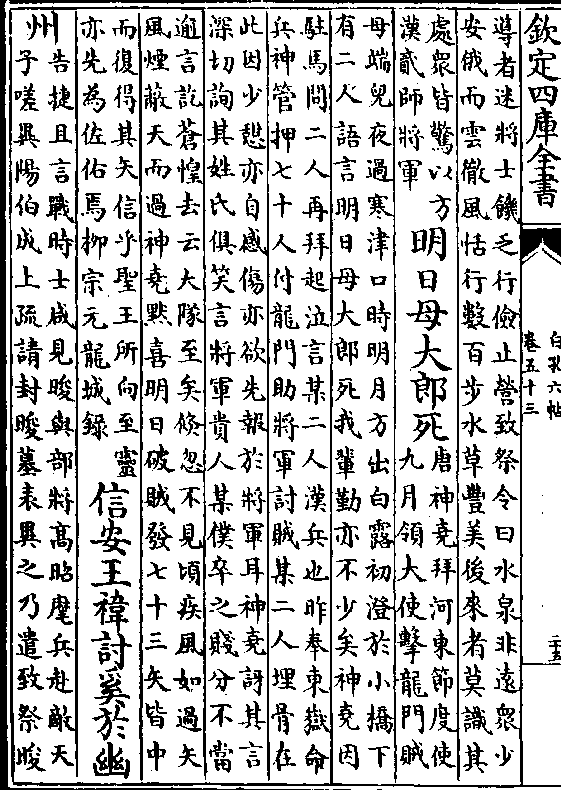 欽定四庫全書
白孔六帖
卷五十三
導者迷將士饑乏行儉止營致祭令曰水泉非遠眾少
安俄而雲徹風恬行數百步水草豐美後來者莫識其
處眾皆驚以方
漢貳師將軍
明日母大郎死
唐神堯拜河東節度使
九月領大使擊龍門賊
母端兒夜過寒津口時明月方出白露初澄於小橋下
有二人語言明日母大郎死我輩勤亦不少矣神堯因
駐馬問二人再拜起泣言某二人漢兵也昨奉東嶽命
兵神管押七十人付龍門助將軍討賊某二人埋骨在
此因少憩亦自感傷亦欲先報於將軍耳神堯訝其言
深切詢其姓氏俱笑言將軍貴人某僕卒之賤分不當
逾言訖蒼惶去云大隊至矣倐忽不見頃疾風如過矢
風煙蔽天而過神堯黙喜明日破賊發七十三矢皆中
而復得其矢信乎聖王所向至靈
亦先為佐佑焉柳宗元龍城錄
信安王禕討奚於幽
州
告捷且言戰時士咸見晙與部將髙昭麾兵赴敵天
子嗟異陽伯成上疏請封晙墓表異之乃遣致祭晙